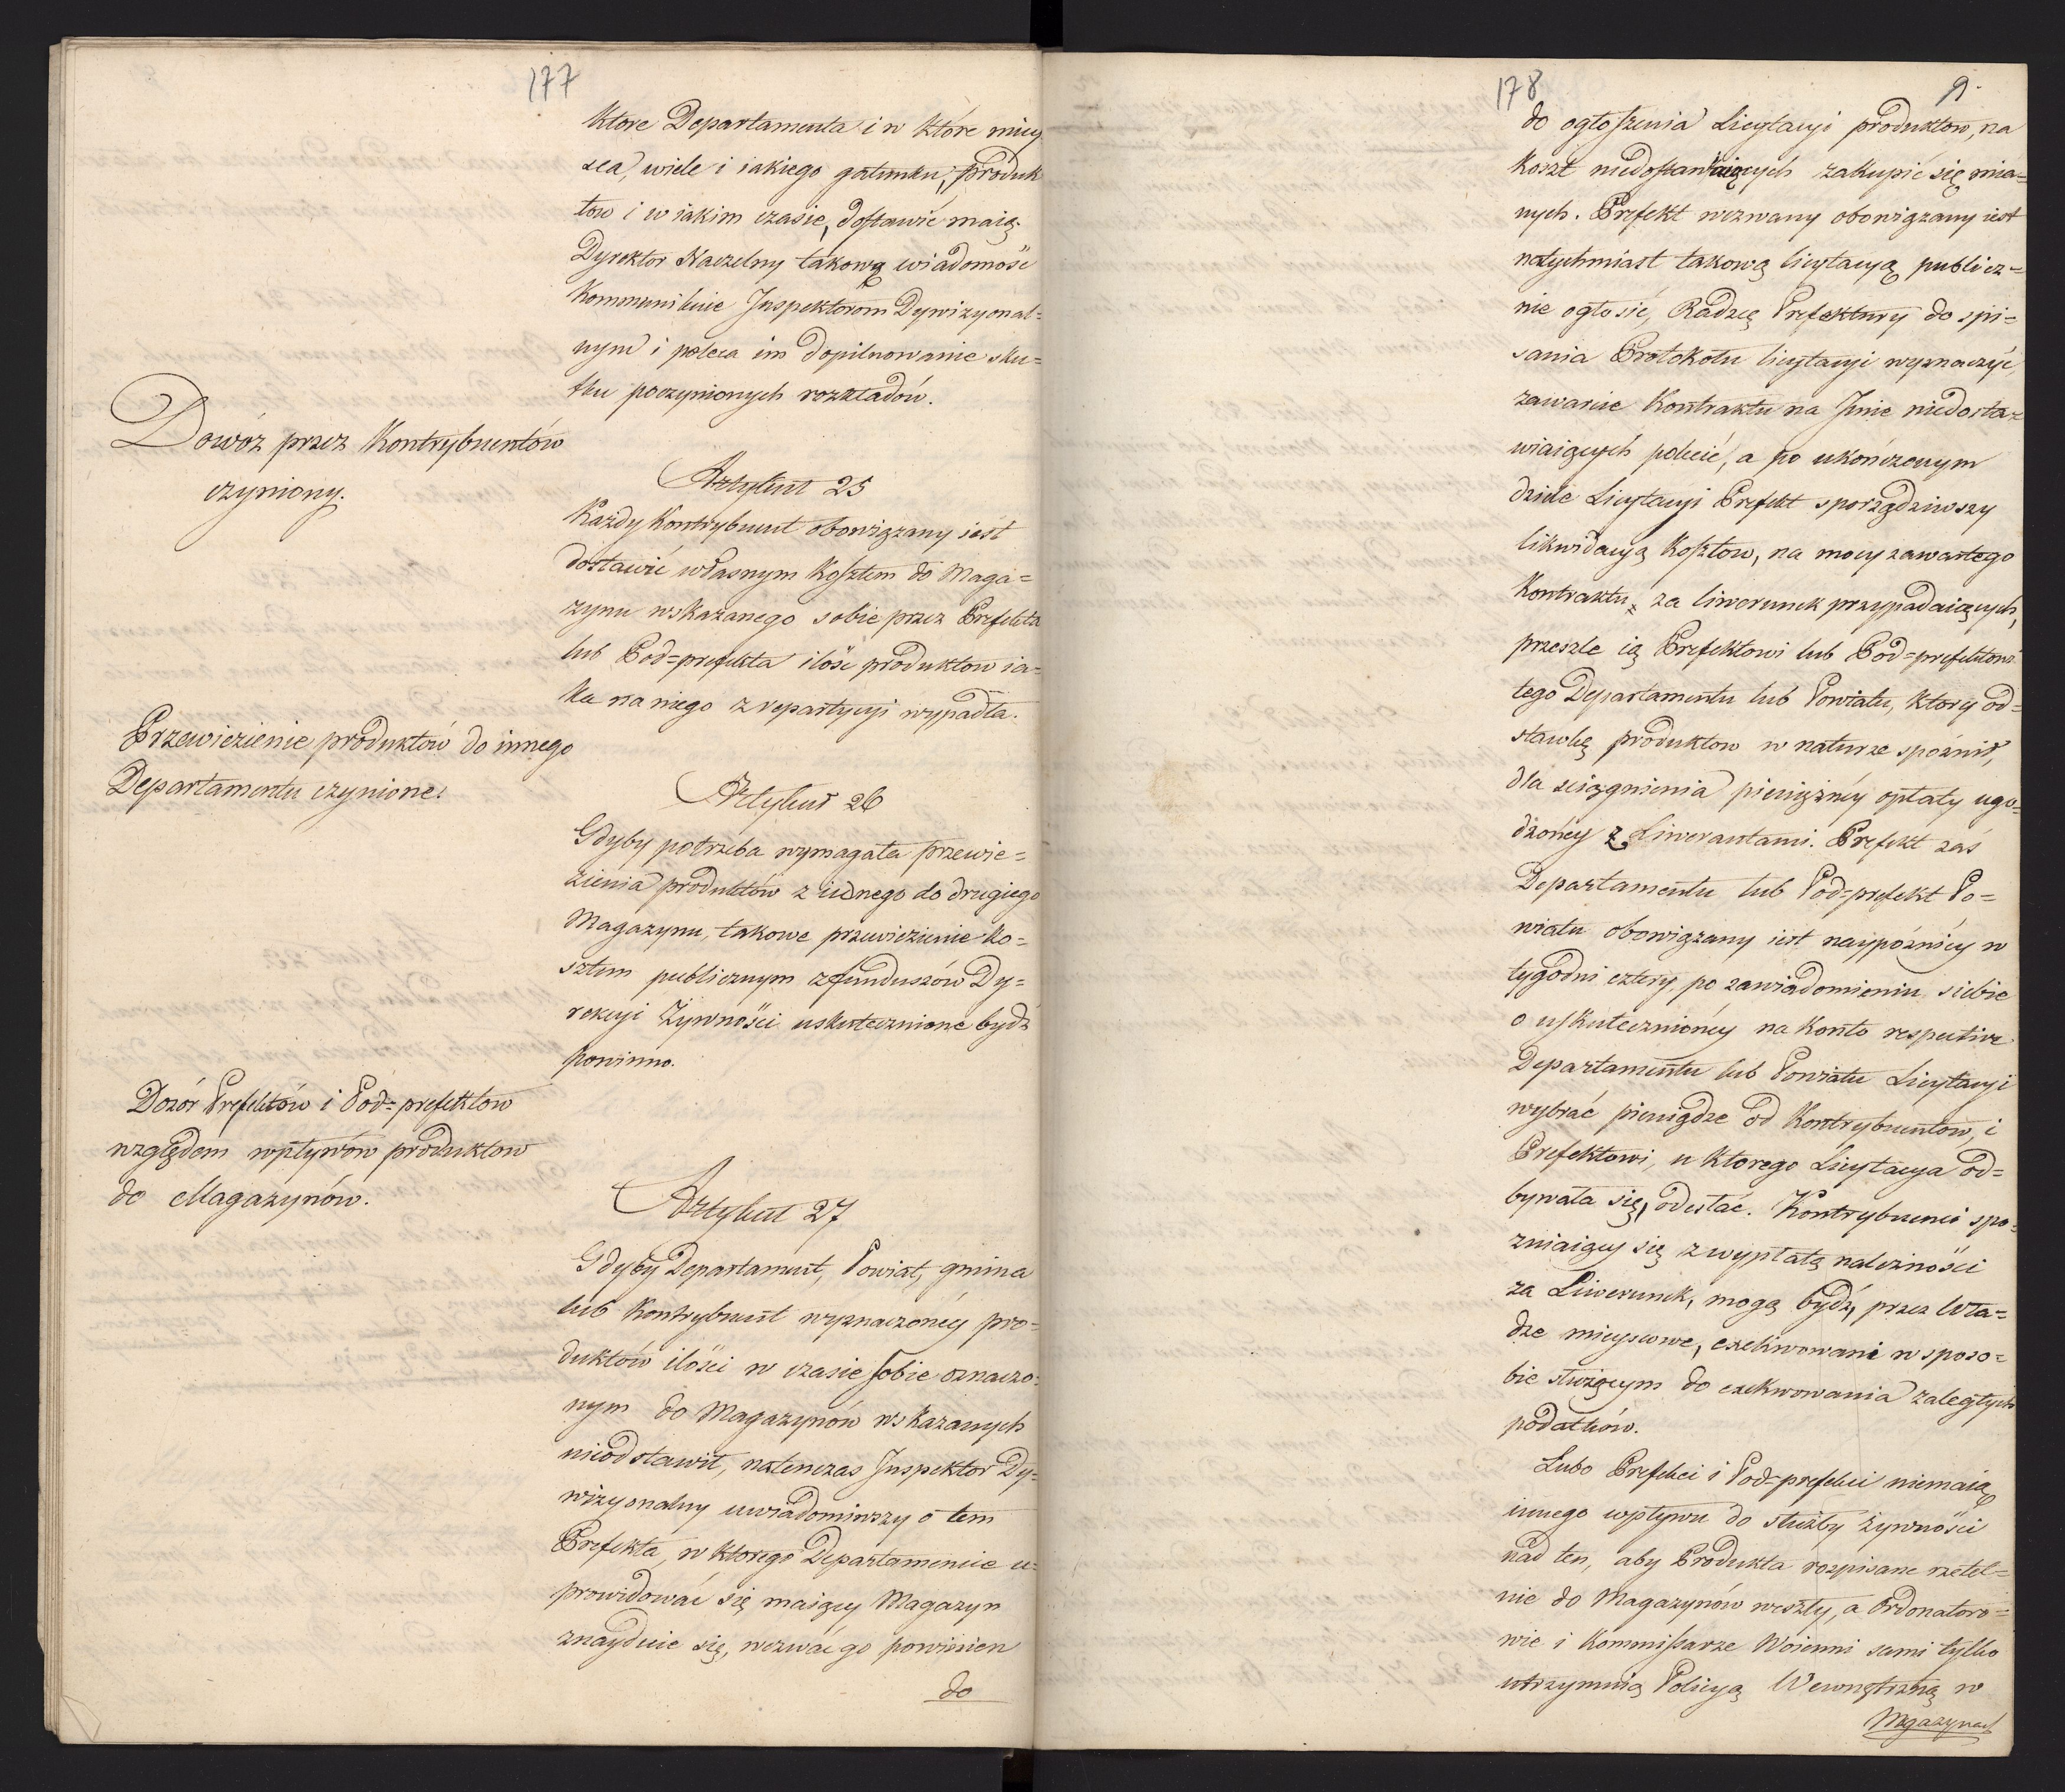 177
ktore Departamenta i w które miey
sca, wiele i iakiego gatunku, produk
tow i w iakim czasie, dostawić maią.
Dyrektor Naczelny takową wiadomość
kommunikuie Inspektorom Dywizyonal=
nym i poleca im dopilnowanie sku=
tku poczynionych rozkładów.
Dowóz przez Kontrybuentów
czyniony.
Artykuł 25
Każdy Kontrybuent obowiązany iest
dostawić własnym kosztem do Maga=
zynu wskazanego sobie przez Prefekta
lub Pod=prefekta ilość produktow ia=
ka na niego z repartycyi wypadła.
Przewiezienie produktów do innego
Departamentu czynione.
Artykuł 26
Gdyby potrzeba wymagała przewie=
zienia produktów z iednego do drugiego
Magazynu, takowe przewiezienie ko=
sztem publicznym z funduszów Dy=
rekcyi Żywności uskutecznione bydź
powinno.
Dozór Prefektów i Pod=prefektow
względem wpływów produktow
do Magazynów.
Artykuł 27
Gdyby Departament, Powiat, gmina
lub Kontrybuent wyznaczonéy pro=
duktów ilości w czasie sobie oznaczo=
nym do Magazynów wskazanych
nieodstawił, natenczas Inspektor Dy=
wizyonalny uwiadomiwszy o tem
Prefekta, w ktorego Departamencie u=
prowidować się maiący Magazyn
znayduie się, wezwać go powinien
do
178
9.
do ogłoszenia Licytacyi produktow, na
koszt niedostawiaiących zakupić się mia=
nych. Prefekt wezwany obowiązany iest
natychmiast takową licytacyą publicz=
nie ogłosić, Radzcę Prefektury do spi=
sania Protokołu licytacyi wyznaczyć,
zawarcie Kontraktu na Imie niedosta=
wiaiących polecić, a po ukończonym
dziele Licytacyi Prefekt sporządziwszy
likwidacyą kosztow, na mocy zawartego
Kontraktu, za liwerunek przypadaiących,
przeszle ią Prefektowi lub Pod=prefektowi
tego Departamentu lub Powiatu, ktory od=
stawkę produktow w naturze spoźnił,
dla sciągnienia pieniężnéy opłaty ugo=
dzonéy z Liwerantami. Prefekt zaś
Departamentu lub Pod=prefekt Po=
wiatu obowiązany iest naypóźniéy w
tygodni cztery, po zawiadomieniu siebie
o uskutecznionéy na konto respective
Departamentu lub Powiatu Licytacyi
wybrać pieniądze od Kontrybuentów, i
Prefektowi, u ktorego Licytacya od=
bywała się, odesłać. Kontrybuenci spo=
zniaiący się z wypłatą należności
za Liwerunek, mogą bydź, przez Wła=
dze mieyscowe, exekwowani w sposo=
bie służącym do exekwowania zaległych
podatków.
Lubo Prefekci i Pod=prefekci niemaią
innego wpływu do służby żywności
nad ten, aby Produkta rozpisane rzetel=
nie do Magazynów weszły, a Ordonatoro=
wie i Kommissarze Woienni sami tylko
utrzymuią Policyą Wewnętrzną w
Magazynach